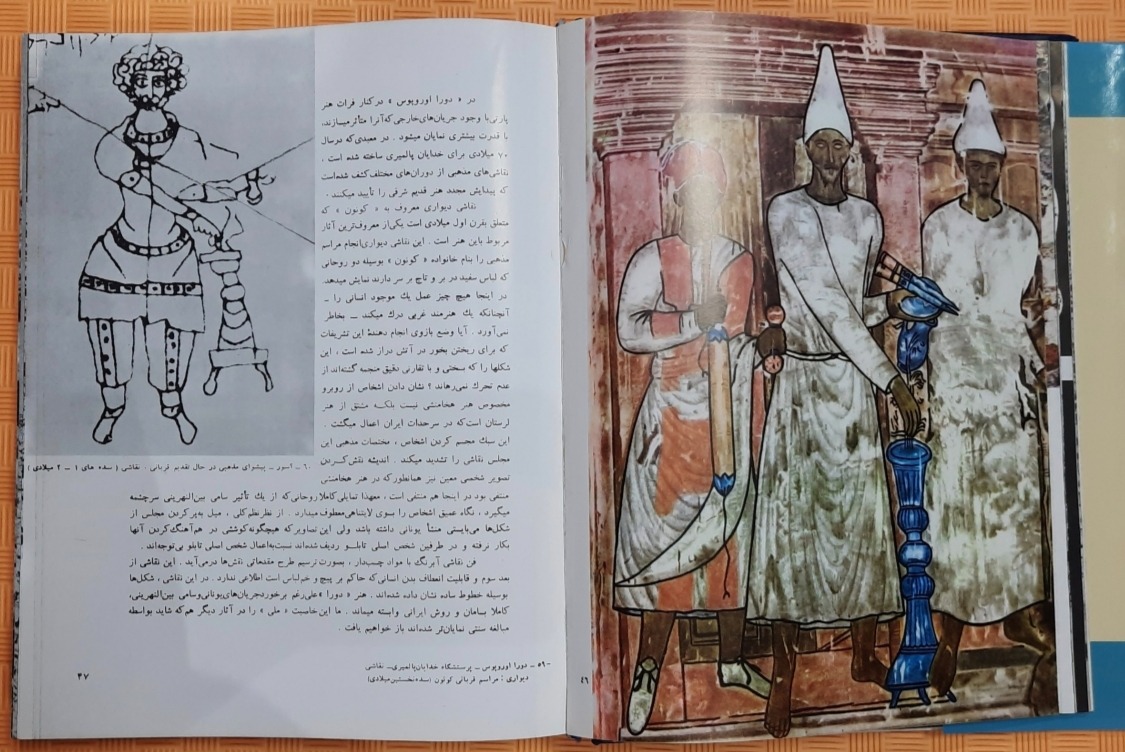 در « دورا اوروپوس » در کنار فرات هنر
پارتی با وجود جریان‌های خارجی که آنرا متأثر میسازند،
با قدرت بیشتری نمایان میشود . در معبدی که در سال
۷۰ میلادی برای خدایان پالمیری ساخته شده است ،
نقاشی‌های مذهبی از دوران‌های مختلف کشف شده است
که پیدایش مجدد هنر قدیم شرقی را تأیید میکنند .
نقاشی دیواری معروف به « کونون » که
متعلق بقرن اول میلادی است یکی از معروف‌ترین آثار
مربوط باین هنر است . این نقاشی دیواری انجام مراسم
مذهبی را بنام خانواده « کونون » بوسیله دو روحانی
که لباس سفید در بر و تاج بر سر دارند نمایش میدهد.
در اینجا هیچ چیز عمل یك موجود انسانی را ــ
آنچنانکه یك هنرمند غربی درك میکند ــ بخاطر
نمی‌آورد . آیا وضع بازوی انجام دهندهٔ این تشریفات
که برای ریختن بخور در آتش دراز شده است ، این
شکلها را که بسختی و با تقارنی دقیق منجمد گشته‌اند از
عدم تحرك نمی‌رهاند ؟ نشان دادن اشخاص از روبرو
مخصوص هنر هخامنشی نیست بلکـه مشتق از هنر
لرستان است که در سرحدات ایران اعمال میگشت .
این سبك مجسم کردن اشخاص ، مختصات مذهبی این
مجلس نقاشی را تشدید میکند . اندیشه نقش کـردن
تصویر شخصی معین نیز همانطور که در هنر هخامنشی
منتفی بود در اینجا هم منتفی است ، معهذا تمایلی کاملا روحانی که از یك تأثیر سامی بین‌النهرینی سرچشمه
میگیرد ، نگاه عمیق اشخاص را بسوی لایتناهی معطوف میدارد . از نظر نظم کلی ، میل به پر کردن مجلس از
شکل‌ها می‌بایستی منشأ یونانی داشته باشد ولی این تصاویر که هیچگونه کوششی در هم‌آهنگ کردن آنها
بکار نرفته و در طرفین شخص اصلی تابلــو ردیف شده‌اند نسبت به اعمال شخص اصلی تابلو بی‌توجه‌اند .
فن نقاشی آبرنگ با مواد چسب‌دار ، بصورت ترسیم طرح مقدماتی نقش‌ها در می‌آید . این نقاشی از
بعد سوم و قابلیت انعطاف بدن انسانی که حاکم بر پیچ و خم لباس است اطلاعی ندارد . در این نقاشی ، شکل‌ها
بوسیله خطوط ساده نشان داده شده‌اند . هنر « دورا » علی‌رغم برخورد جریان‌های یونانی وسامی بین‌النهرینی،
کاملا بسامان و روش ایرانی وابسته میماند . ما این خاصیت « ملی » را در آثار دیگر هم که شاید بواسطه
مبالغه سنتی نمایان‌تر شده‌اند باز خواهیم یافت .
۶۰ ــ آسور ــ پیشوای مذهبی در حال تقدیم قربانی . نقاشی ( سده های ۱ ــ ۲ میلادی )
۵۹ ــ دورا اوروپوس ــ پرستشگاه خدایان پالمیری ــ نقاشی
دیواری : مراسم قربانی کونون (سده نخستین میلادی)
۴۷
٤٦